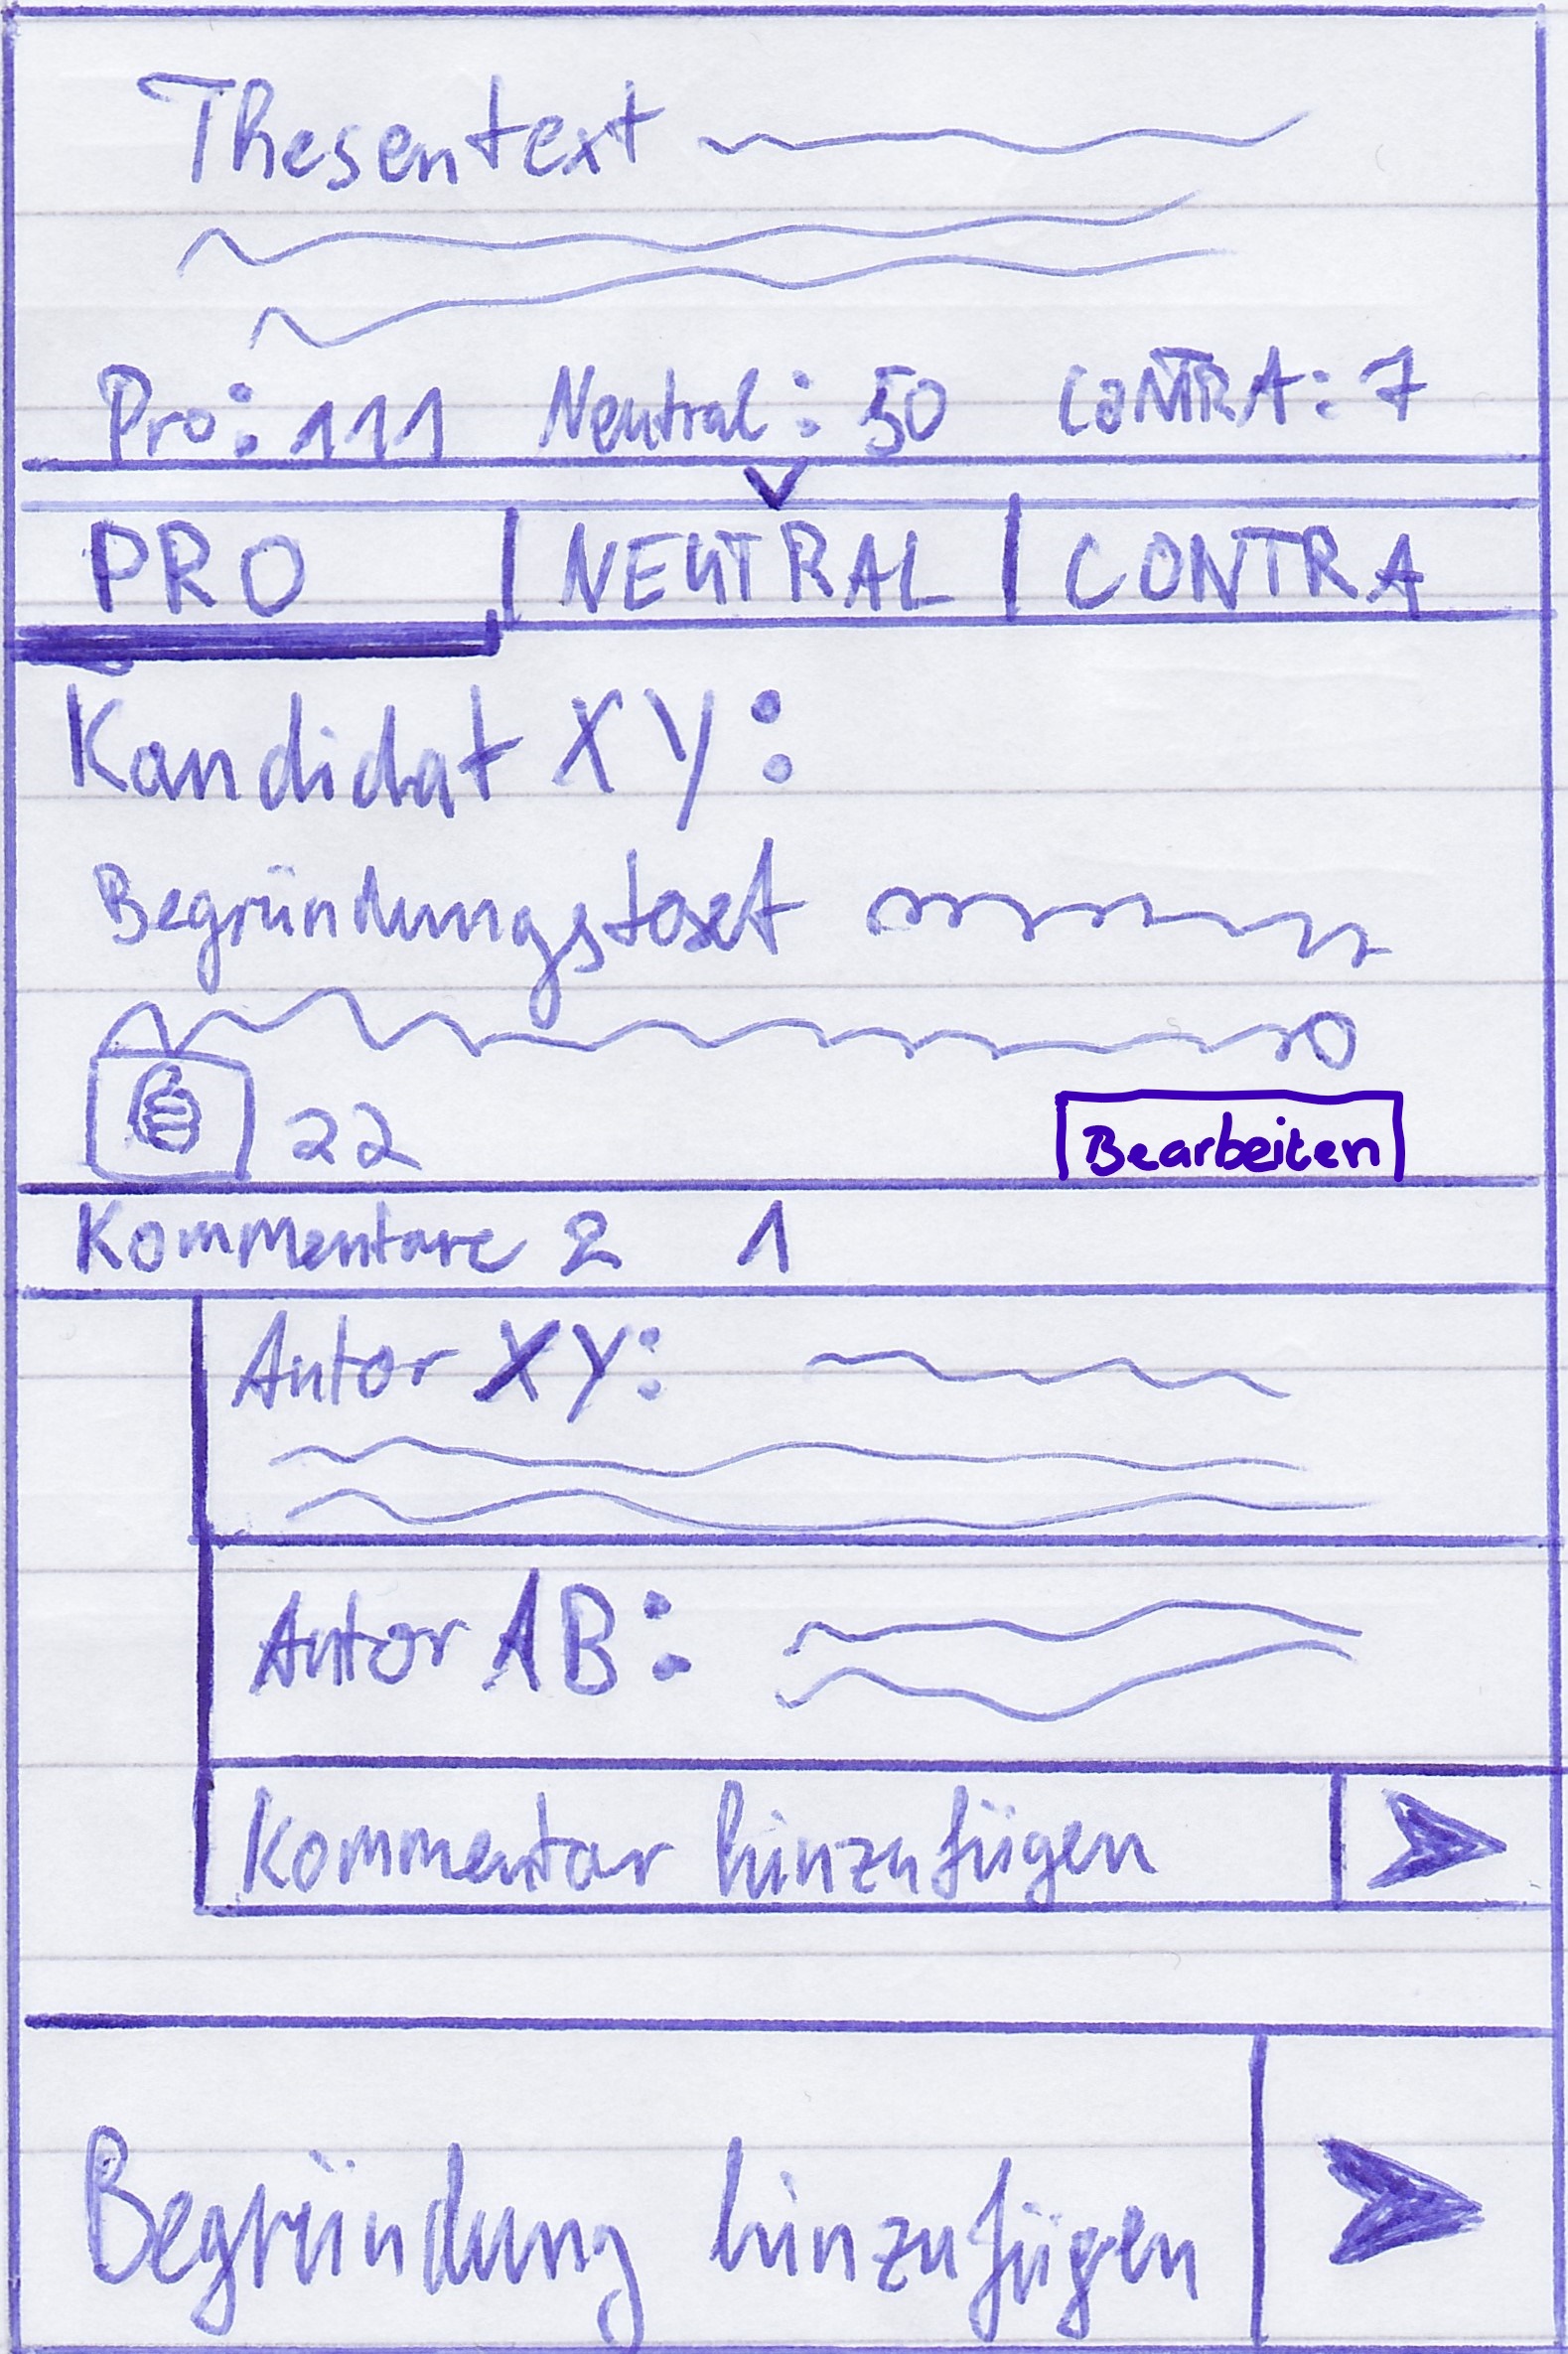 Thesentext
Pro: 111 Neutral: 50 CONTRA: 7
PRO | NEUTRAL | CONTRA
Kandidat XY:
Begründungstext
22 Bearbeiten
Kommentare 2 1
Autor XY:
Autor AB:
Kommentar hinzufügen
Begründung hinzufügen